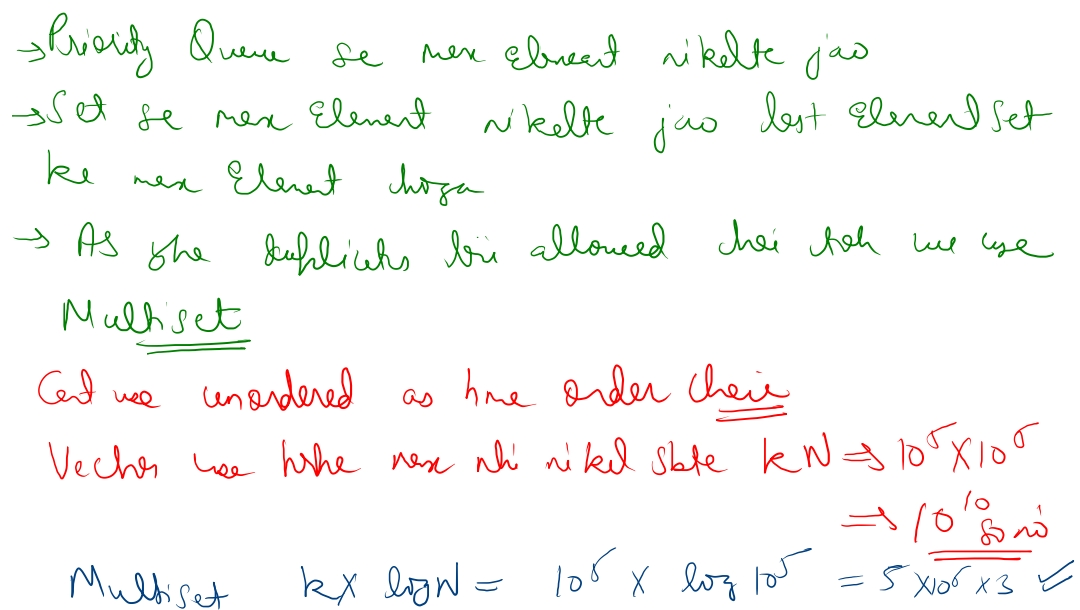 → Priority Queue se max Element nikalte jao
→ Set se max Element nikalte jao last Element Set
ke max Element hoga
→ As yha duplicates bhi allowed hai toh we use
Multiset
Cant use unordered as hme order chaiye
Vector use krke max nhi nikal skte kN ⇒ 10⁵ X 10⁵
⇒ 10¹⁰ so no
Multiset kX logN = 10⁵ X log 10⁵ = 5 X10⁵ X3 ✓